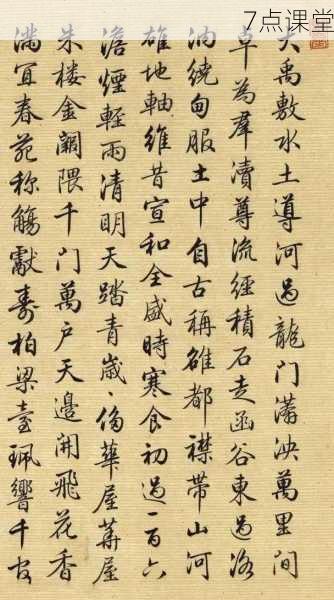 7点课堂
大禹敷水土導河過龍门瀟泱萬里間
卓為羣瀆尊流經積石走函谷東過洛
汭繞甸服土中自古稱雒都襟帶山河
雄地軸維昔宣和全盛時寒食初過一百六
澹煙輕雨清明天踏青歲、傷華屋華屋
朱楼金闕隈千门萬户天邊開飛花香
滿宜春苑称觴獻壽柏梁臺珮響千官